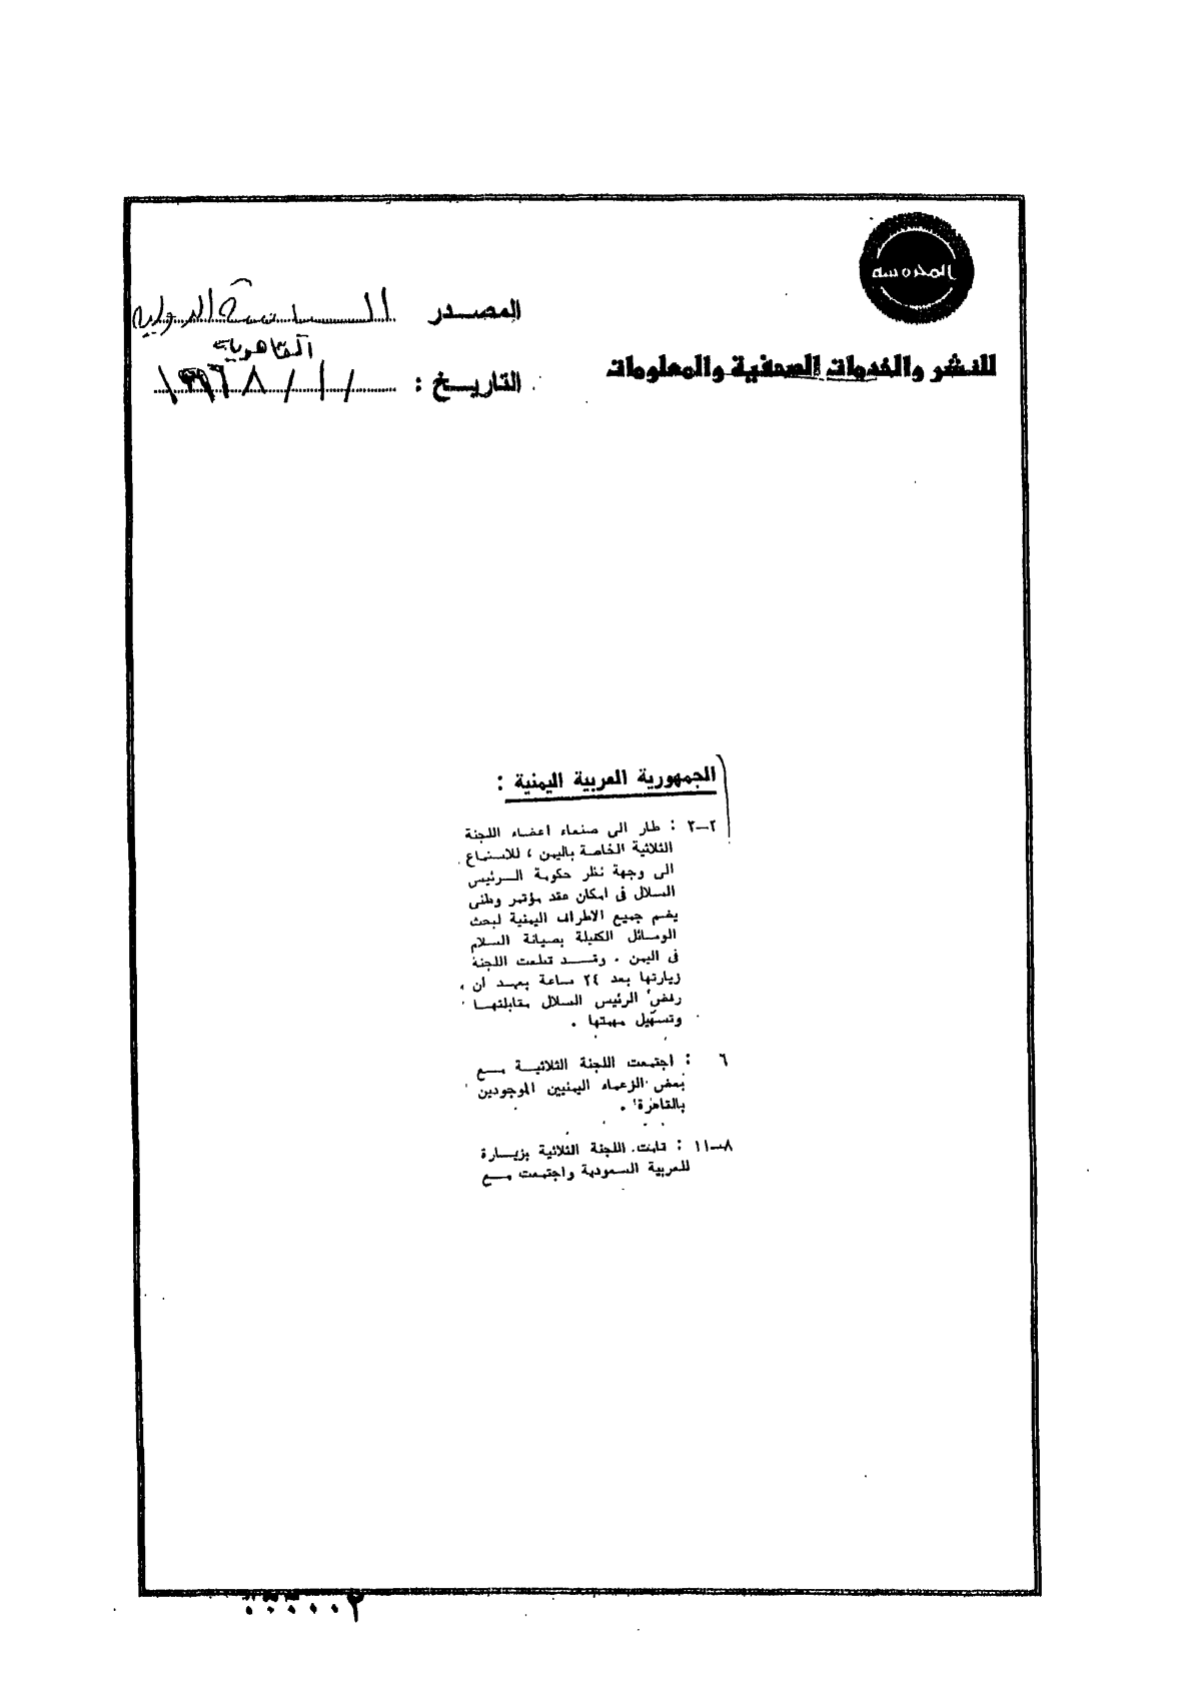 المحروسة
المصدر السياسة الدولية
القاهرية
للنشر والخدمات الصحفية والمعلومات
التاريخ : ١٩٦٨/١/
الجمهورية العربية اليمنية :
٢ــ٣ : طار الى صنعاء اعضاء اللجنة
الثلاثية الخاصة باليمن ، للاستماع
الى وجهة نظر حكومة الـــرئيس
السلال فى امكان عقد مؤتمر وطنى
يضم جميع الاطراف اليمنية لبحث
الوسائل الكفيلة بصيانة السلام
فى اليمن . وقــــد قطعت اللجنة
زيارتها بعد ٢٤ ساعة بعــد ان
رفض الرئيس السلال مقابلتهــا
وتسهيل مهمتها .
٦ : اجتمعت اللجنة الثلاثيــة مـــع
بعض الزعماء اليمنيين الموجودين
بالقاهرة .
٨ــ١١ : قامت اللجنة الثلاثية بزيــارة
للعربية السعودية واجتمعت مـــع